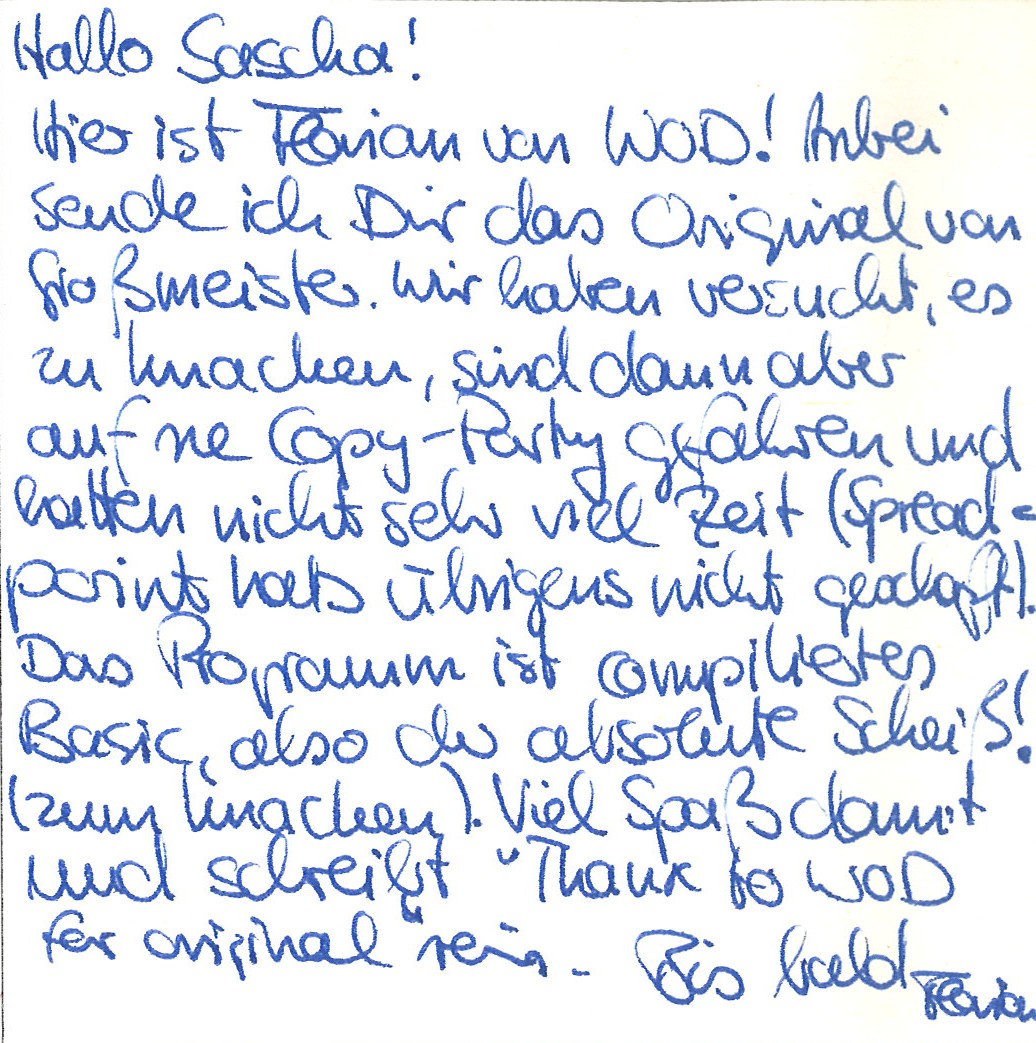 Hallo Sascha!
Hier ist Florian von WOD! Anbei
sende ich Dir das Original von
Großmeister. Wir haben versucht, es
zu knacken, sind dann aber
auf ne Copy-Party gefahren und
hatten nicht sehr viel Zeit (Spread=
point hats übrigens nicht geschafft).
Das Programm ist compiliertes
Basic, also der absolute Scheiß!
(zum knacken). Viel Spaß damit
und schreibt "Thank to WOD
for original" rein. Bis bald
Florian